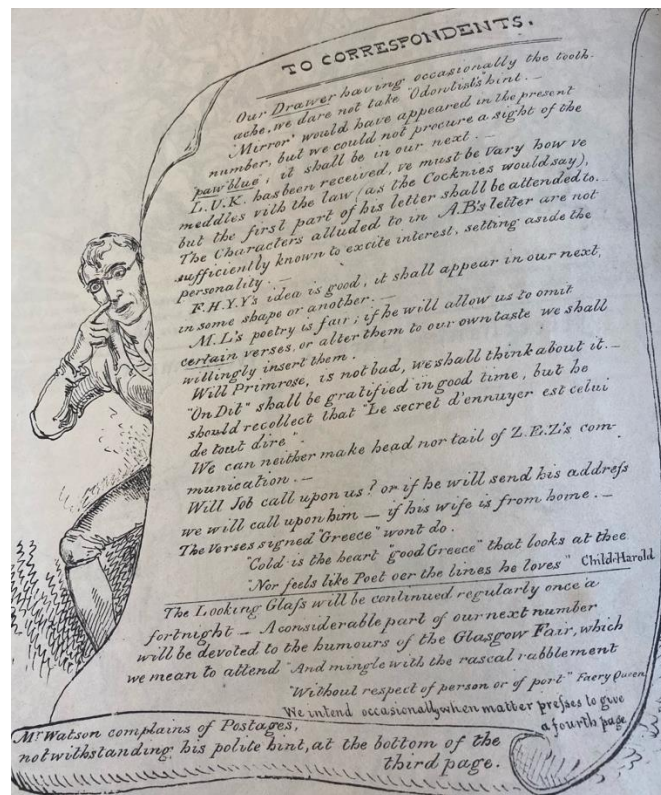 TO CORRESPONDENTS.
Our Drawer having occasionally the tooth-
ache, we dare not take "Odontist's" hint. —
"Mirror" would have appeared in the present
number, but we could not procure a sight of the
"paw blue", it shall be in our next. —
L.U.K. has been received, ve must be vary how ve
meddles vith the law (as the Cocknies would say),
but the first part of his letter shall be attended to.
The Characters alluded to in A.B's letter are not
sufficiently known to excite interest, setting aside the
personality. —
F.H.Y.Y's idea is good, it shall appear in our next,
in some shape or another. —
M.L's poetry is fair; if he will allow us to omit
certain verses, or alter them to our own taste we shall
willingly insert them.
Will Primrose, is not bad, we shall think about it. —
"On Dit" shall be gratified in good time, but he
should recollect that "Le secret d'ennuyer est celui
de tout dire".
We can neither make head nor tail of Z.E.Z's com-
munication. —
Will Job call upon us? or if he will send his addreſs
we will call upon him — if his wife is from home. —
The Verses signed "Greece" wont do.
"Cold is the heart "good Greece" that looks at thee
"Nor feels like Poet oer the lines he loves" Child-Harold
The Looking Glaſs will be continued regularly once a
fortnight — A considerable part of our next number
will be devoted to the humours of the Glasgow Fair, which
we mean to attend "And mingle with the rascal rabblement
"Without respect of person or of port" Faery Queen
We intend occasionally when matter preſses to give
a fourth page
Mr Watson complains of Postages,
notwithstanding his polite hint, at the bottom of the
third page.